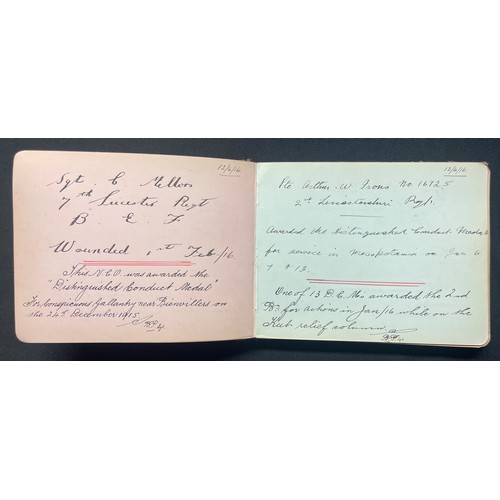 12/6/16
Sgt. C. Mellors
7th Leicester Regt
B. E. F.
Wounded 1st Feb/16.
This N.C.O. was awarded the
"Distinguished Conduct Medal"
For Conspicuous Gallantry near Bienvillers on
the 24th December 1915.
12/6/16
Pte Arthur. W. Irons No. 16725
2nd Leicestershire Regt.
Awarded the Distinguished Conduct Medal
for service in Mesopotamia on Jan 6
7 & 13.
One of 13 D.C.Ms awarded the 2nd
Bn for actions in Jan/16 while on the
Kut relief column.